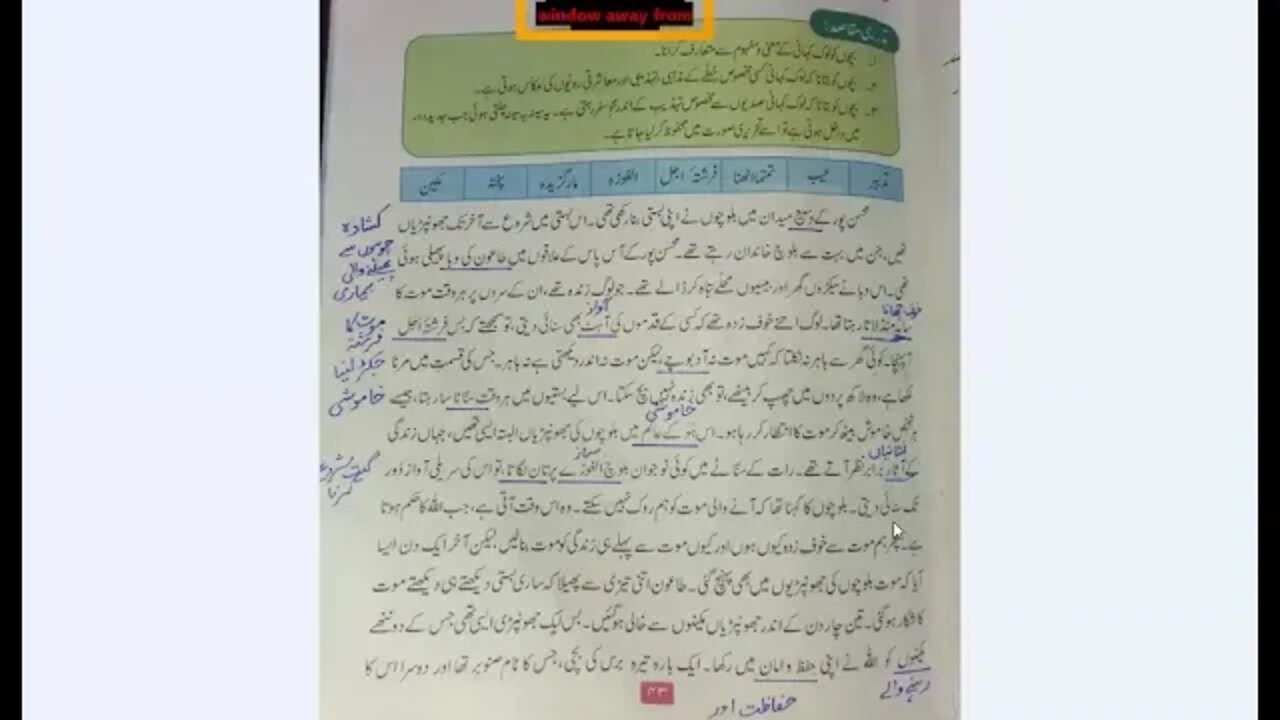 window away from
تدریسی مقاصد:
۱۔ بچوں کو لوک کہانی کے معنی و مفہوم سے متعارف کرانا۔
۲۔ بچوں کو بتانا کہ لوک کہانی کسی مخصوص خطے کے مذہبی، تہذیبی اور معاشرتی رویوں کی عکاس ہوتی ہے۔
۳۔ بچوں کو بتانا کہ لوک کہانی صدیوں سے مخصوص تہذیب کے اندر محوِ سفر رہتی ہے۔ یہ سینہ بہ سینہ چلتی ہوئی جب جدید دور
میں داخل ہوتی ہے تو اسے تحریری صورت میں محفوظ کر لیا جاتا ہے۔
تدبیر عیب تمتما اٹھنا فرشتۂ اجل الغوزہ مارگزیدہ پلٹنا مکین
محسن پور کے وسیع میدان میں بلوچوں نے اپنی بستی بنا رکھی تھی۔ اس بستی میں شروع سے آخر تک جھونپڑیاں
کشادہ
تھیں، جن میں بہت سے بلوچ خاندان رہتے تھے۔ محسن پور کے آس پاس کے علاقوں میں طاعون کی وبا پھیلی ہوئی
چوہوں سے
پھیلنے والی
تھی۔ اس وبا نے سیکڑوں گھر اور بیسیوں محلے تباہ کر ڈالے تھے۔ جو لوگ زندہ تھے، ان کے سروں پر ہر وقت موت کا
بیماری
آواز
سایہ منڈلاتا رہتا تھا۔ لوگ اتنے خوف زدہ تھے کہ کسی کے قدموں کی آہٹ بھی سنائی دیتی، تو سمجھتے کہ بس فرشتۂ اجل
موت کا
فرشتہ
آ پہنچا۔ کوئی گھر سے باہر نہ نکلتا کہ کہیں موت نہ آ دبوچے، لیکن موت نہ اندر دیکھتی ہے نہ باہر۔ جس کی قسمت میں مرنا
جکڑ لینا
لکھا ہے، وہ لاکھ پردوں میں چھپ کر بیٹھے، تو بھی زندہ نہیں بچ سکتا۔ اس لیے بستیوں میں ہر وقت سناٹا سا رہتا، جیسے
خاموشی
خاموشی
ہر شخص خاموش بیٹھ کر موت کا انتظار کر رہا ہو۔ اس ہُو کے عالم میں بلوچوں کی جھونپڑیاں البتہ ایسی تھیں، جہاں زندگی
نشانیاں
ساز
کے آثار برابر نظر آتے تھے۔ رات کے سناٹے میں کوئی نوجوان بلوچ الغوزے پر تان لگاتا، تو اس کی سریلی آواز دُور
گیت شروع
کرنا
تک سنائی دیتی۔ بلوچوں کا کہنا تھا کہ آنے والی موت کو ہم روک نہیں سکتے۔ وہ اس وقت آتی ہے، جب اللہ کا حکم ہوتا
ہے۔ پھر ہم موت سے خوف زدہ کیوں ہوں اور کیوں موت سے پہلے ہی زندگی کو موت بنا لیں، لیکن آخر ایک دن ایسا
آیا کہ موت بلوچوں کی جھونپڑیوں میں بھی پہنچ گئی۔ طاعون اتنی تیزی سے پھیلا کہ ساری بستی دیکھتے ہی دیکھتے موت
کا شکار ہو گئی۔ تین چار دن کے اندر جھونپڑیاں مکینوں سے خالی ہو گئیں۔ بس ایک جھونپڑی ایسی تھی جس کے دو ننھے
مکینوں کو اللہ نے اپنی حفظ و امان میں رکھا۔ ایک بارہ تیرہ برس کی بچی، جس کا نام صنوبر تھا اور دوسرا اس کا
رہنے والے
حفاظت اور
۴۳